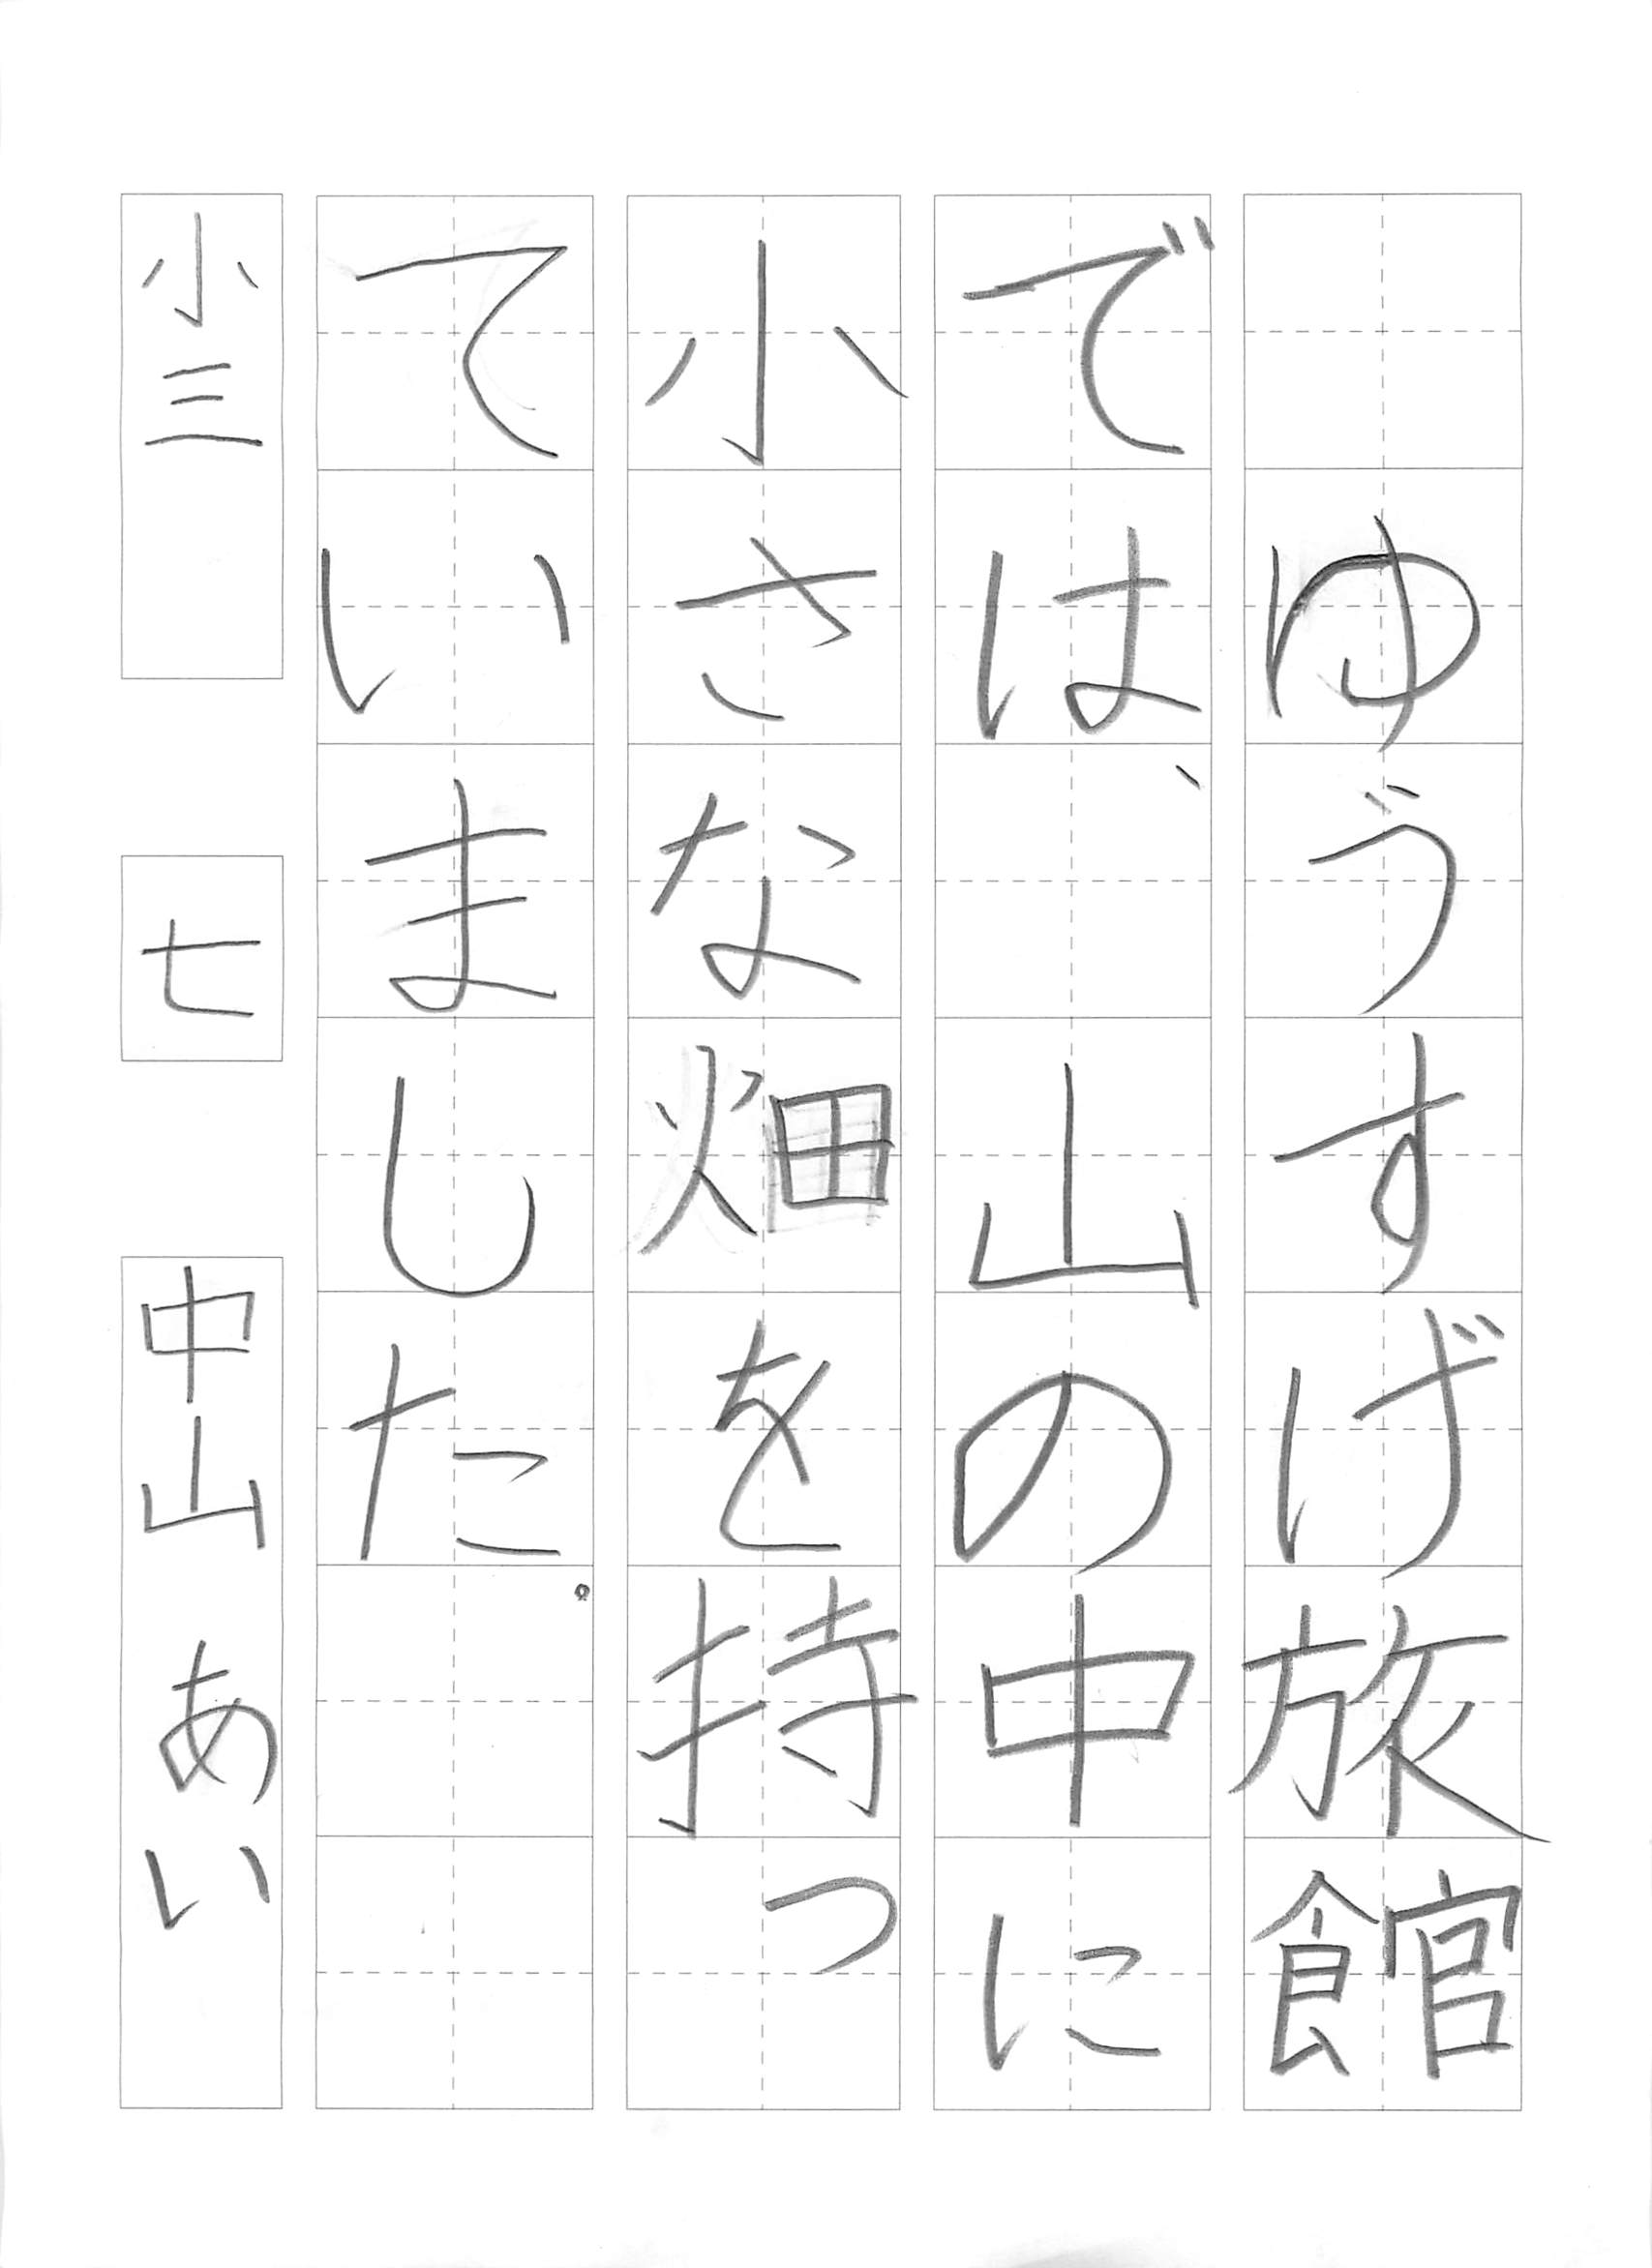 ゆうすげ旅館
では、山の中に
小さな畑を持っ
ていました。
小三 七 中山 あい